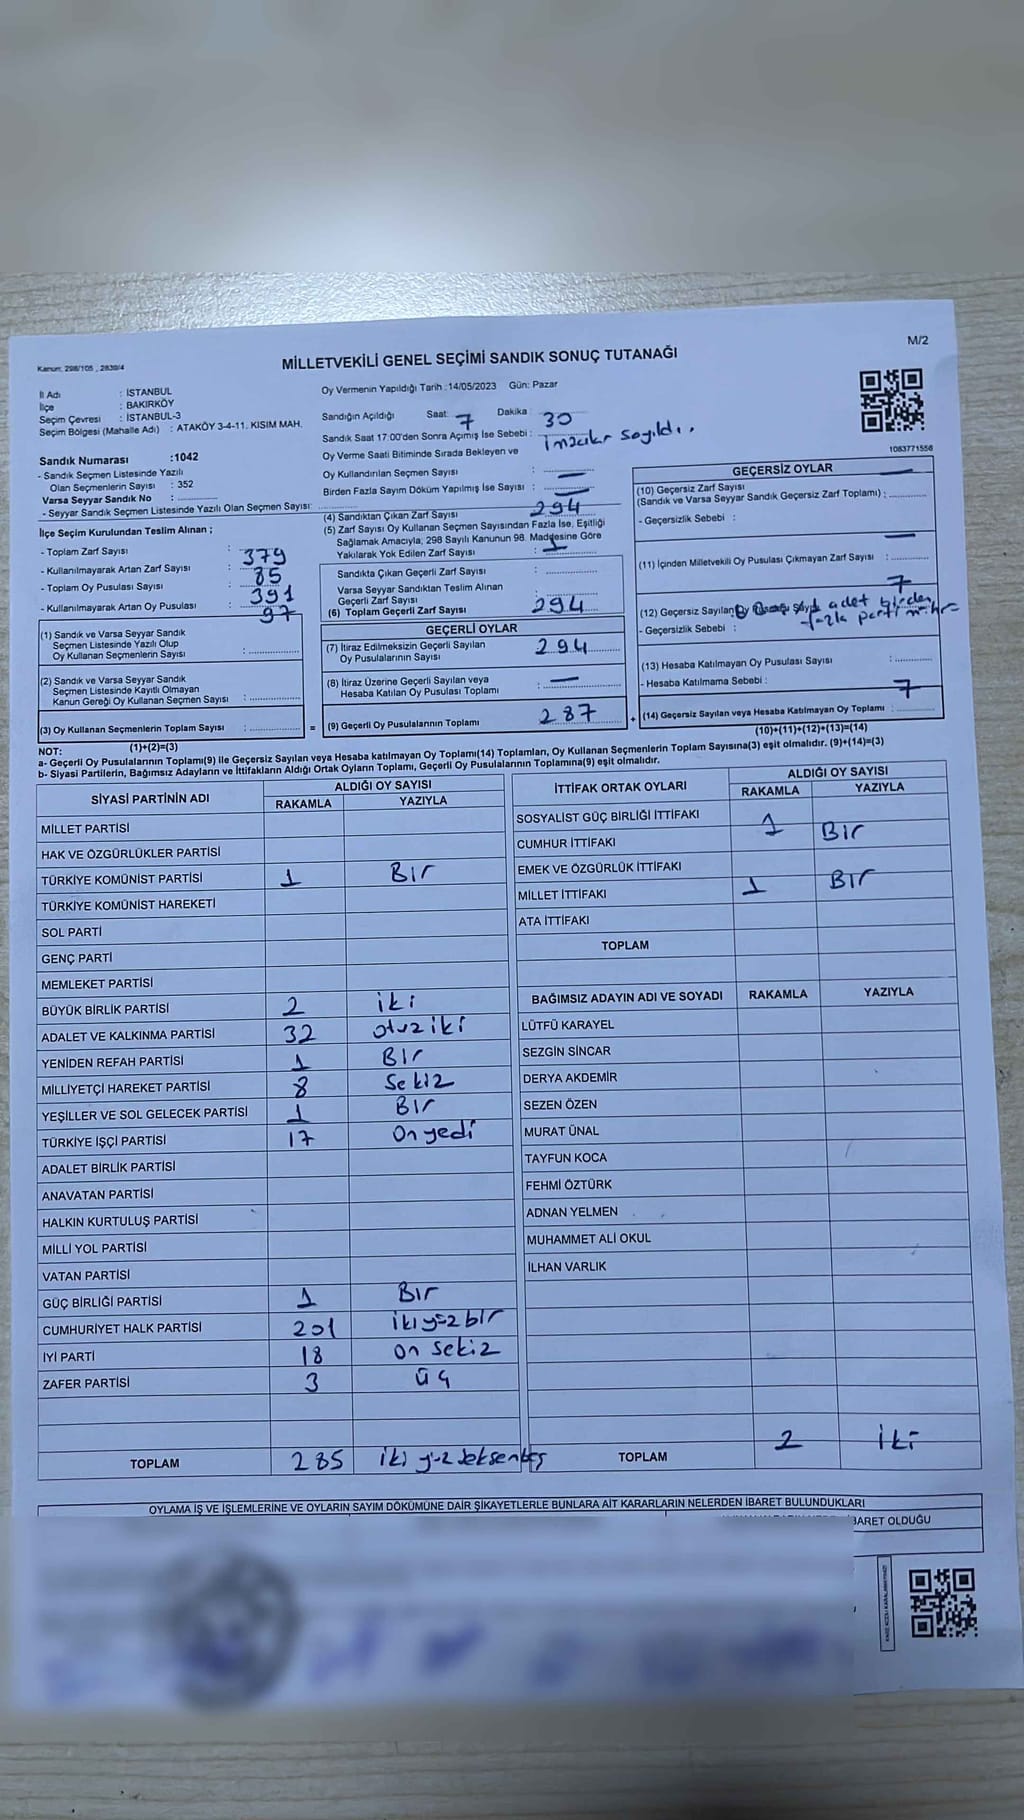 M/2
Kanun: 298/105 , 2839/4
MİLLETVEKİLİ GENEL SEÇİMİ SANDIK SONUÇ TUTANAĞI
İl Adı : İSTANBUL
İlçe : BAKIRKÖY
Seçim Çevresi : İSTANBUL-3
Seçim Bölgesi (Mahalle Adı) : ATAKÖY 3-4-11. KISIM MAH.
Sandık Numarası :1042
- Sandık Seçmen Listesinde Yazılı
Olan Seçmenlerin Sayısı : 352
Varsa Seyyar Sandık No :
- Seyyar Sandık Seçmen Listesinde Yazılı Olan Seçmen Sayısı:
İlçe Seçim Kurulundan Teslim Alınan ;
- Toplam Zarf Sayısı : 379
- Kullanılmayarak Artan Zarf Sayısı : 85
- Toplam Oy Pusulası Sayısı : 391
- Kullanılmayarak Artan Oy Pusulası : 97
(1) Sandık ve Varsa Seyyar Sandık
Seçmen Listesinde Yazılı Olup
Oy Kullanan Seçmenlerin Sayısı :
(2) Sandık ve Varsa Seyyar Sandık
Seçmen Listesinde Kayıtlı Olmayan
Kanun Gereği Oy Kullanan Seçmen Sayısı :
(3) Oy Kullanan Seçmenlerin Toplam Sayısı : =
(1)+(2)=(3)
Oy Vermenin Yapıldığı Tarih :14/05/2023 Gün: Pazar
Sandığın Açıldığı Saat: 7 Dakika : 30
Sandık Saat 17:00'den Sonra Açımış İse Sebebi : imzalar sayıldı.
Oy Verme Saati Bitiminde Sırada Bekleyen ve
Oy Kullandırılan Seçmen Sayısı : —
Birden Fazla Sayım Döküm Yapılmış İse Sayısı : —
(4) Sandıktan Çıkan Zarf Sayısı : 294
(5) Zarf Sayısı Oy Kullanan Seçmen Sayısından Fazla İse, Eşitliği
Sağlamak Amacıyla, 298 Sayılı Kanunun 98. Maddesine Göre
Yakılarak Yok Edilen Zarf Sayısı : 1
Sandıkta Çıkan Geçerli Zarf Sayısı :
Varsa Seyyar Sandıktan Teslim Alınan
Geçerli Zarf Sayısı :
(6) Toplam Geçerli Zarf Sayısı : 294
GEÇERLİ OYLAR
(7) İtiraz Edilmeksizin Geçerli Sayılan
Oy Pusulalarının Sayısı : 294
(8) İtiraz Üzerine Geçerli Sayılan veya
Hesaba Katılan Oy Pusulası Toplamı : —
(9) Geçerli Oy Pusulalarının Toplamı : 287 +
1083771556
GEÇERSİZ OYLAR
(10) Geçersiz Zarf Sayısı
(Sandık ve Varsa Seyyar Sandık Geçersiz Zarf Toplamı) : —
- Geçersizlik Sebebi :
(11) İçinden Milletvekili Oy Pusulası Çıkmayan Zarf Sayısı : —
(12) Geçersiz Sayılan 7
adet birden
- Geçersizlik Sebebi : fazla parti mühr
(13) Hesaba Katılmayan Oy Pusulası Sayısı :
- Hesaba Katılmama Sebebi :
(14) Geçersiz Sayılan veya Hesaba Katılmayan Oy Toplamı : 7
(10)+(11)+(12)+(13)=(14)
NOT:
a- Geçerli Oy Pusulalarının Toplamı(9) ile Geçersiz Sayılan veya Hesaba katılmayan Oy Toplamı(14) Toplamları, Oy Kullanan Seçmenlerin Toplam Sayısına(3) eşit olmalıdır. (9)+(14)=(3)
b- Siyasi Partilerin, Bağımsız Adayların ve İttifakların Aldığı Ortak Oyların Toplamı, Geçerli Oy Pusulalarının Toplamına(9) eşit olmalıdır.
SİYASİ PARTİNİN ADI ALDIĞI OY SAYISI
RAKAMLA YAZIYLA
MİLLET PARTİSİ
HAK VE ÖZGÜRLÜKLER PARTİSİ
TÜRKİYE KOMÜNİST PARTİSİ 1 Bir
TÜRKİYE KOMÜNİST HAREKETİ
SOL PARTİ
GENÇ PARTİ
MEMLEKET PARTİSİ
BÜYÜK BİRLİK PARTİSİ 2 iki
ADALET VE KALKINMA PARTİSİ 32 otuz iki
YENİDEN REFAH PARTİSİ 1 Bir
MİLLİYETÇİ HAREKET PARTİSİ 8 Sekiz
YEŞİLLER VE SOL GELECEK PARTİSİ 1 Bir
TÜRKİYE İŞÇİ PARTİSİ 17 On yedi
ADALET BİRLİK PARTİSİ
ANAVATAN PARTİSİ
HALKIN KURTULUŞ PARTİSİ
MİLLİ YOL PARTİSİ
VATAN PARTİSİ
GÜÇ BİRLİĞİ PARTİSİ 1 Bir
CUMHURİYET HALK PARTİSİ 201 ikiyüz bir
İYİ PARTİ 18 on sekiz
ZAFER PARTİSİ 3 üç
TOPLAM 285 iki yüz seksen beş
İTTİFAK ORTAK OYLARI ALDIĞI OY SAYISI
RAKAMLA YAZIYLA
SOSYALİST GÜÇ BİRLİĞİ İTTİFAKI
CUMHUR İTTİFAKI 1 Bir
EMEK VE ÖZGÜRLÜK İTTİFAKI
MİLLET İTTİFAKI 1 Bir
ATA İTTİFAKI
TOPLAM
BAĞIMSIZ ADAYIN ADI VE SOYADI RAKAMLA YAZIYLA
LÜTFÜ KARAYEL
SEZGİN SİNCAR
DERYA AKDEMİR
SEZEN ÖZEN
MURAT ÜNAL
TAYFUN KOCA
FEHMİ ÖZTÜRK
ADNAN YELMEN
MUHAMMET ALİ OKUL
İLHAN VARLIK
TOPLAM 2 iki
OYLAMA İŞ VE İŞLEMLERİNE VE OYLARIN SAYIM DÖKÜMÜNE DAİR ŞİKAYETLERLE BUNLARA AİT KARARLARIN NELERDEN İBARET BULUNDUKLARI
İBARET OLDUĞU